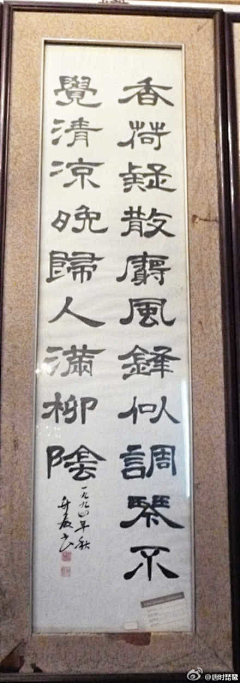 香荷疑散麝風鐸似調琴不
覺清凉晚歸人滿柳陰
一九九四年秋
@唐时琵琶